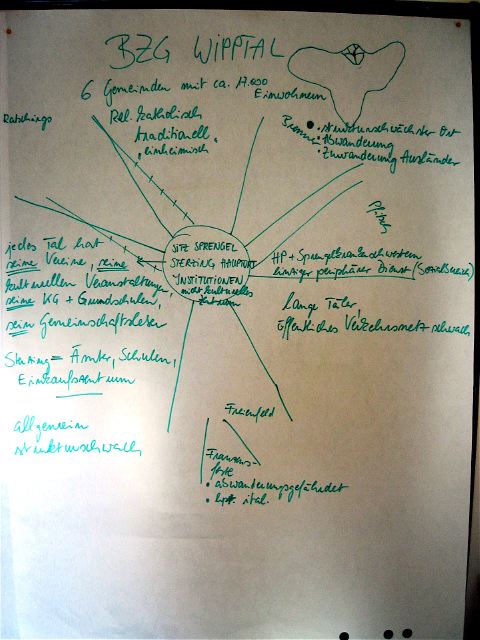 BZG WIPPTAL
6 Gemeinden mit ca. 17.000
Einwohnern
Rel. katholisch
traditionell,
"einheimisch
Ratschings
Brenner
• strukturschwächster Ort
• Abwanderung
• Zuwanderung Ausländer
Pfitsch
SITZ SPRENGEL
STERZING HAUPTORT
INSTITUTIONEN
nicht kulturelles
Zentrum
HP + Sprengelkrankenschwestern
einziger peripherer Dienst (Sozialbereich)
lange Täler,
öffentliches Verkehrsnetz schwach
jedes Tal hat
seine Vereine, seine
kulturellen Veranstaltungen,
seine KG + Grundschulen,
sein Gemeinschaftsleben
Sterzing = Ämter, Schulen,
Einkaufszentrum
allgemein
strukturschwach
Freienfeld
Franzens-
feste
• abwanderungsgefährdet
ital.